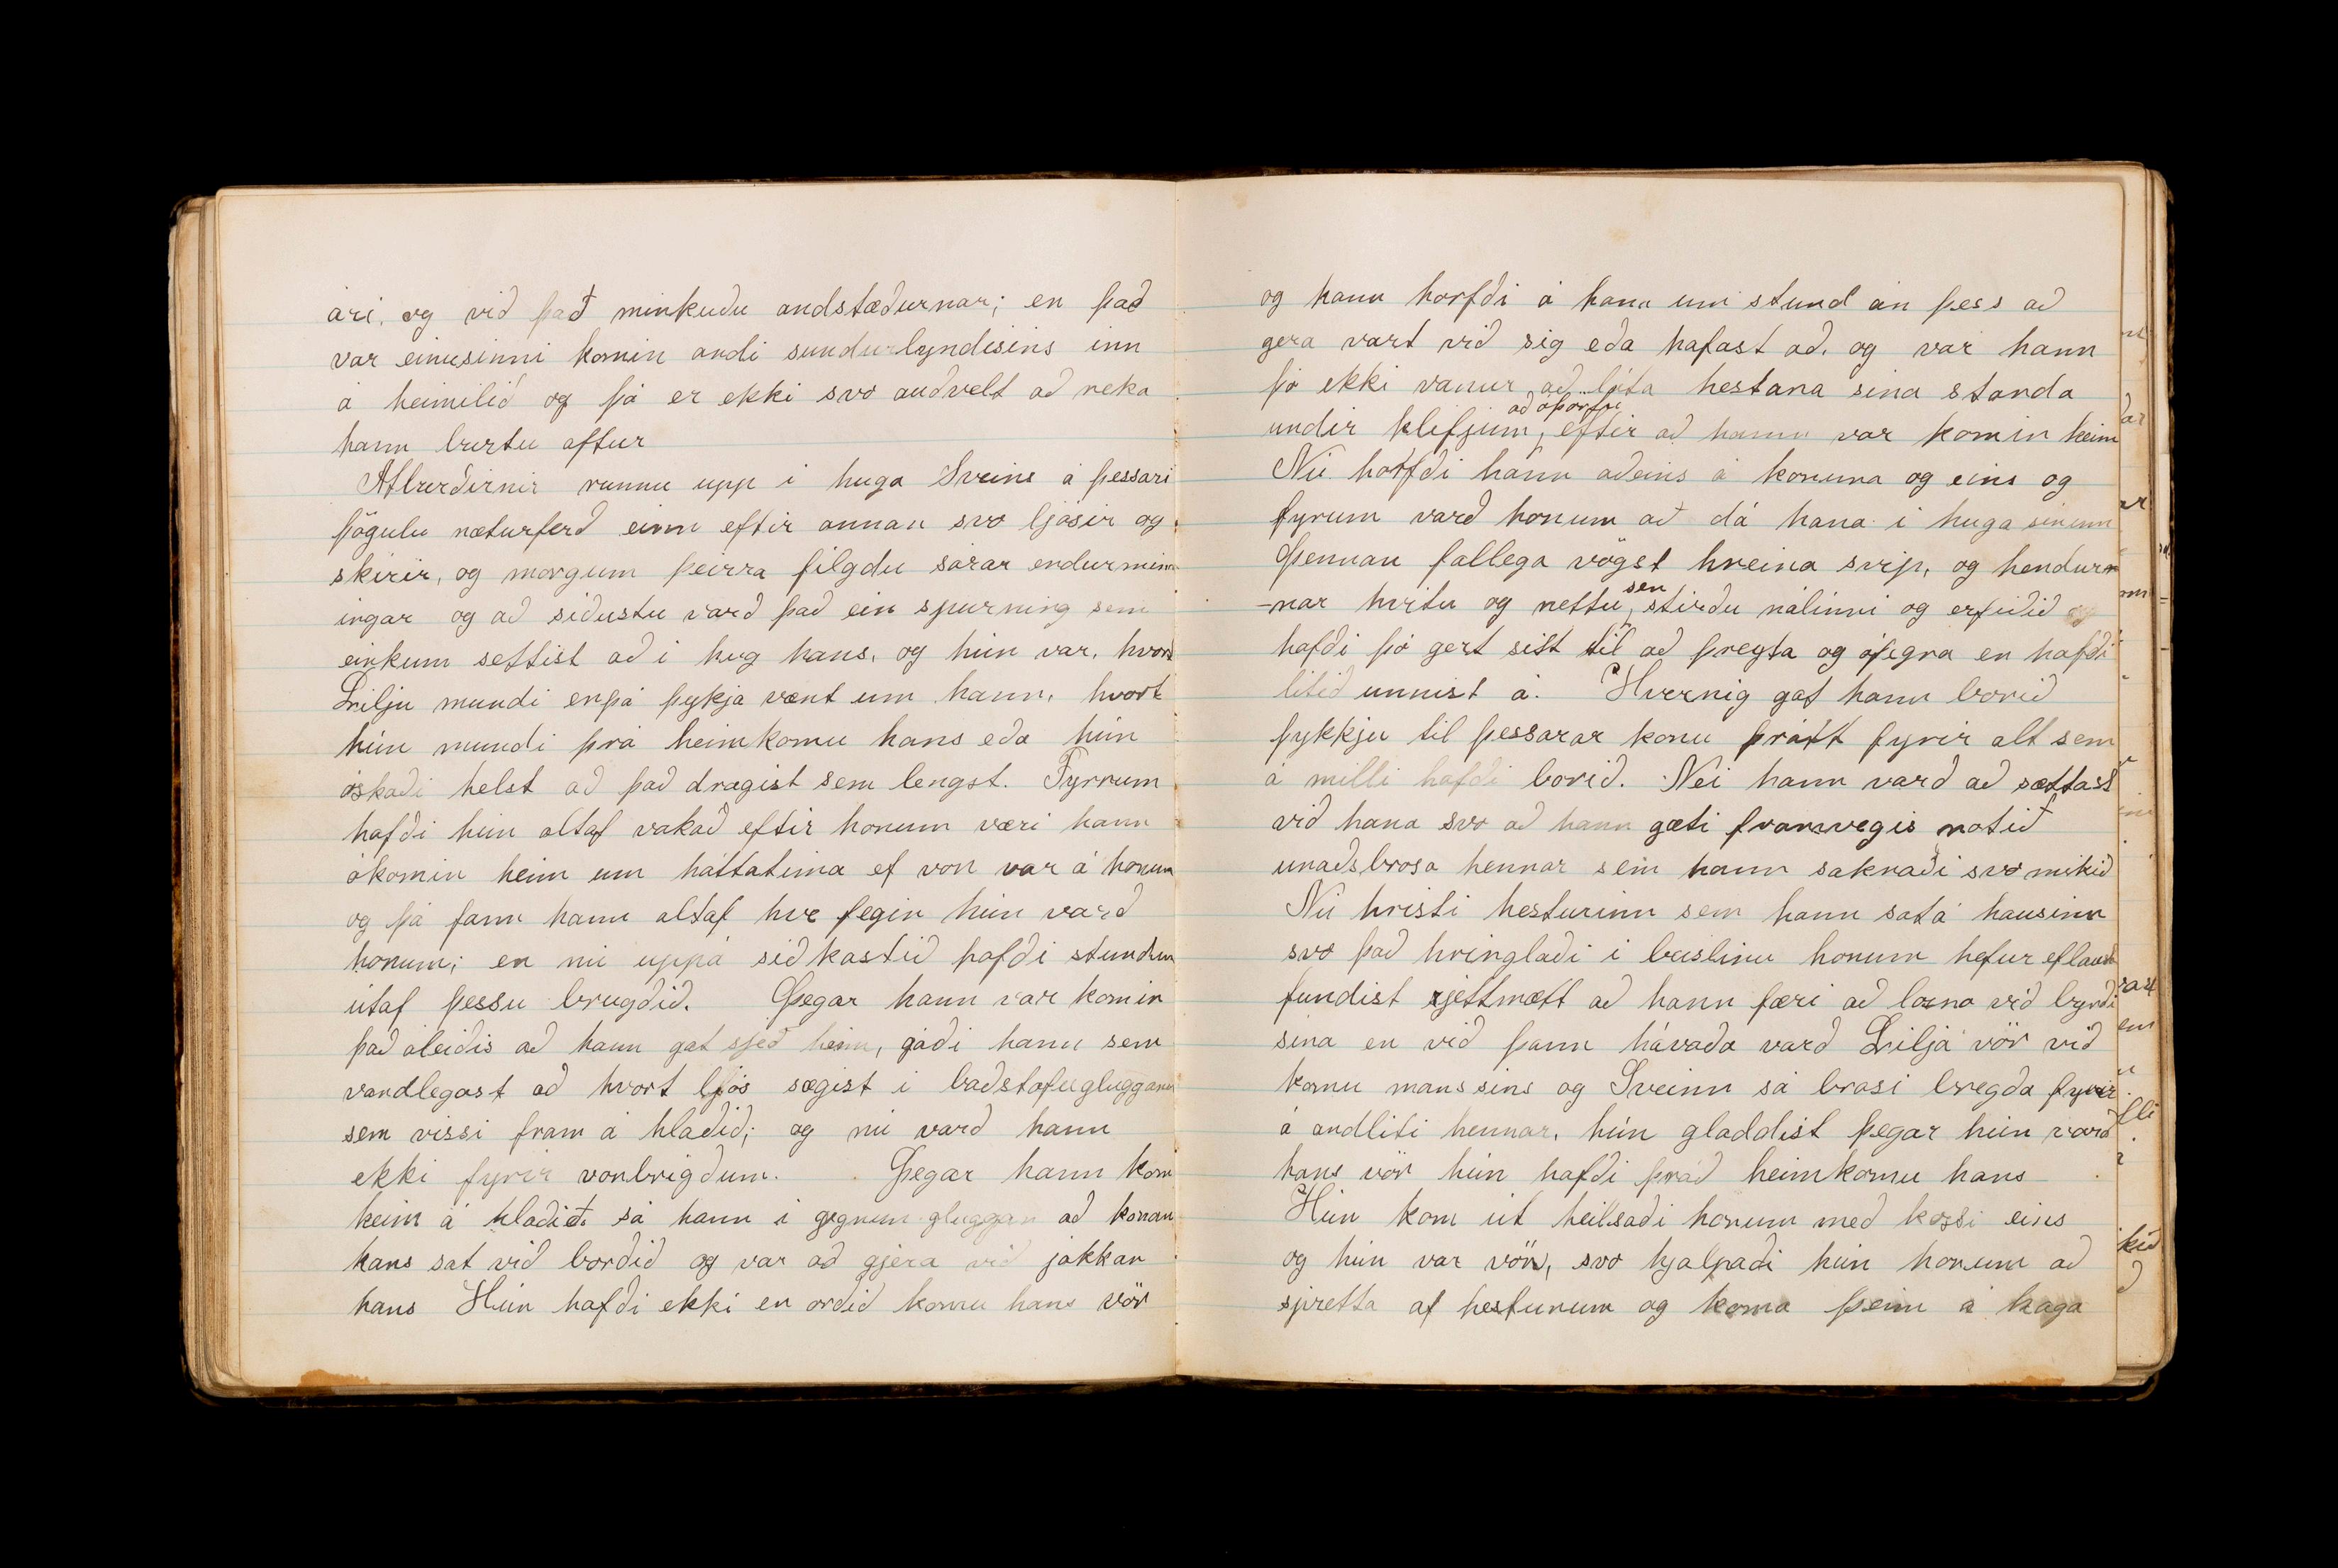 ári, og við það minkuðu andstæðurnar; en það
var einusinni komin andi sundurlyndisins inn
á heimilið og þá er ekki svo auðvelt að reka
hann burtu aftur
Atburðirnir runnu upp i huga Sveins á þessari
þögulu næturferð einn eftir annan svo ljósir og
skírir, og morgum þeirra filgdu sárar endurminn
ingar og að síðustu varð það ein spurning sem
einkum settist að i hug hans, og hún var, hvort
Lilju mundi enþá þykja vænt um hann, hvort
hún mundi þrá heimkomu hans eða hún
óskaði helst að það dragist sem lengst. Fyrrum
hafði hún altaf vakað eftir honum væri hann
ókomin heim um háttatima ef von var á honum
og þá fann hann altaf hve fegin hún varð
honum; en nú uppá síðkastið hafði stundum
útaf þessu brugðið. Þegar hann var komin
það áleiðis að hann gat sjeð heim, gáði hann sem
vandlegast að hvort ljós sægist i baðstofuglugganum
sem vissi fram á hlaðið; og nú varð hann
ekki fyrir vonbrigðum. Þegar hann kom
heim á hlaðið sá hann i gegnum gluggan að konan
hans sat við borðið og var að gjera við jakkan
hans Hún hafði ekki en orðið komu hans vör
og hann horfði á hana um stund án þess að
gera vart við sig eða hafast að, og var hann
þó ekki vanur að láta hestana sína standa
undir klifjum, að óþörfu eftir að hann var komin heim
Nú horfði hann aðeins á konuna og eins og
fyrum varð honum að dá hana i huga sinum
Þennan fallega vögst hreina svip, og hendur
-nar hvitu og nettu, sen stirðu nálinni og erfiðið og
hafði þó gert sitt til að þreyta og ófegra en hafði
litið unnist á. Hvernig gat hann borið
þykkju til þessarar konu þrátt fyrir alt sem
á milli hafði borið. Nei hann varð að sættast
við hana svo að hann gæti framvegis notið
unaðsbrosa hennar sem hann saknaði svo mikið
Nú hristi hesturinn sem hann sat á hausinn
svo það hringlaði i beislinu honum hefur eflaust
fundist rjettmætt að hann færi að losna við byrði
sína en við þann hávaða varð Lilja vör við
komu mans sins og Sveinn sá brosi bregða fyrir
á andliti hennar, hún gladdist þegar hún varð
hans vör hún hafði þráð heimkomu hans
Hún kom út heilsaði honum með kossi eins
og hún var vön, svo hjalpaði hún honum að
spretta af hestunum og koma þeim á haga